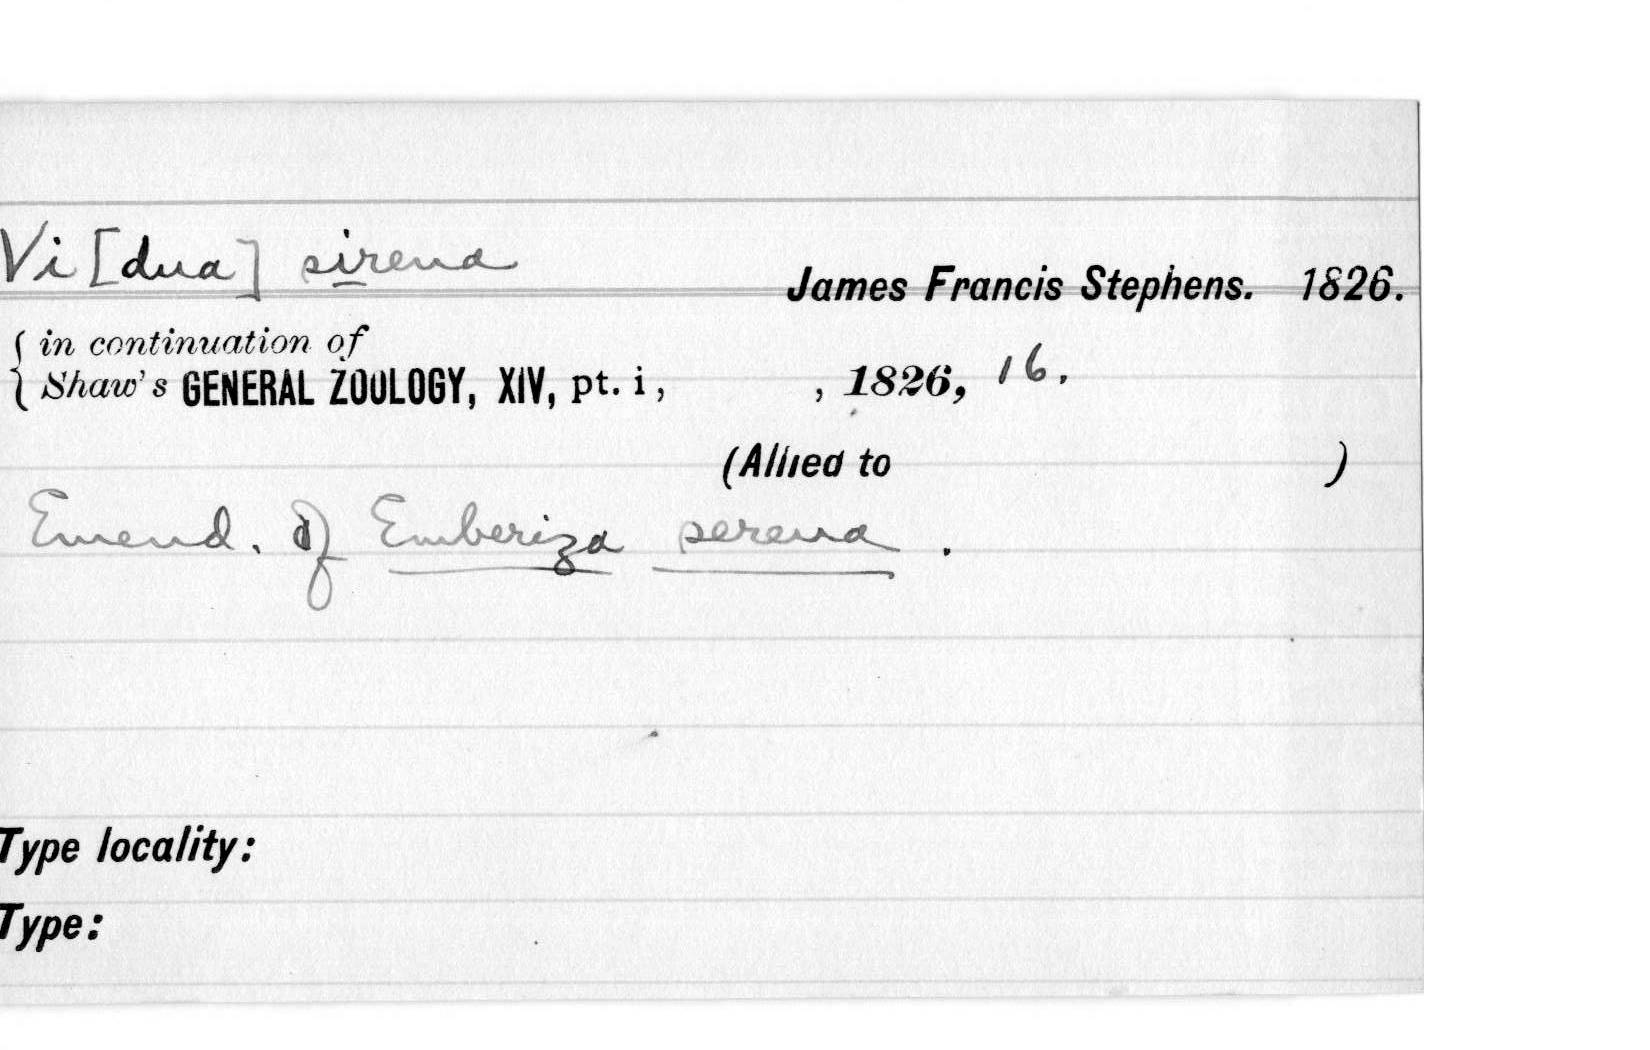 Vi[dua] sirena
James Francis Stephens. 1826.
in continuation of
Shaw's GENERAL ZOOLOGY, XIV, pt. i, , 1826, 16.
(Allied to )
Emend. of Emberiza serena.
Type locality:
Type: